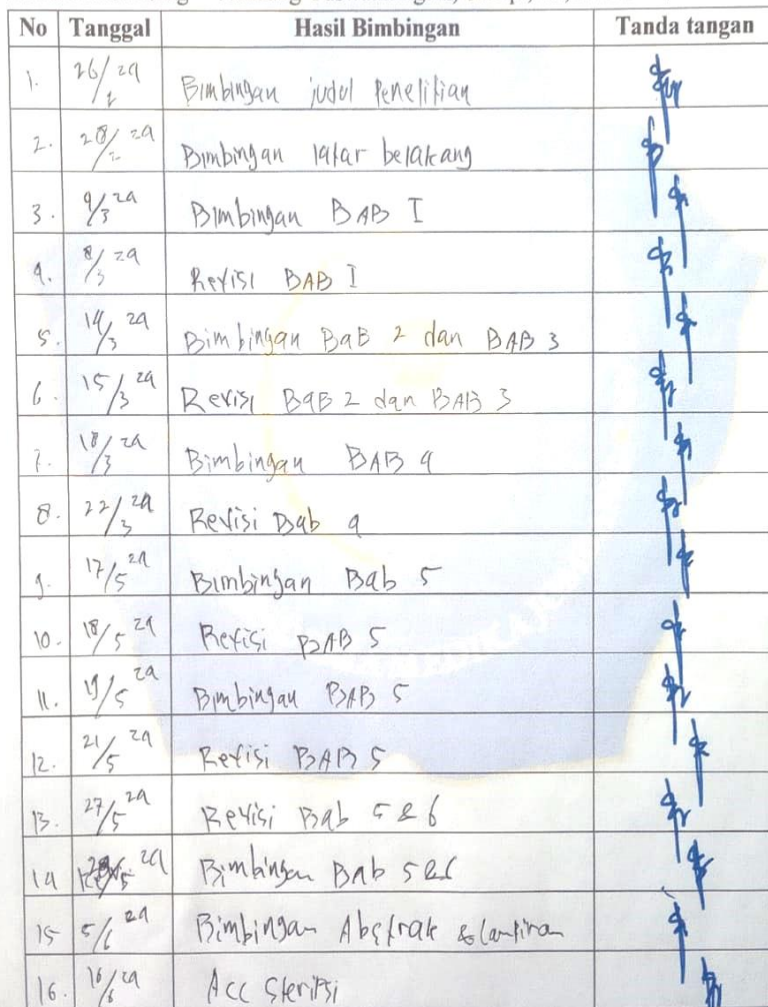 No Tanggal Hasil Bimbingan Tanda tangan
1. 26/2 24 Bimbingan judul Penelitian
2. 28/2 24 Bimbingan latar belakang
3. 4/3 24 Bimbingan BAB I
4. 8/3 24 Revisi BAB I
5. 14/3 24 Bimbingan BaB 2 dan BAB 3
6. 15/3 24 Revisi BaB 2 dan BAB 3
7. 18/3 24 Bimbingan BAB 4
8. 22/3 24 Revisi Bab 4
9. 17/5 24 Bimbingan Bab 5
10. 18/5 24 Revisi BAB 5
11. 19/5 24 Bimbingan BAB 5
12. 21/5 24 Revisi BAB 5
13. 27/5 24 Revisi Bab 5 & 6
14 /5 24 Bimbingan Bab 5 & 6
15 5/6 24 Bimbingan Abstrak & lampiran
16. /6 24 Acc Skripsi